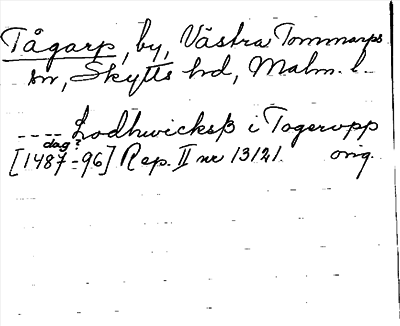 Tågarp, by, Västra Tommarps
sn, Skytts hd, Malm. l.
---- Lodhwicksß i Togeropp
dag?
[1487-96] Rep. II nr 13121. orig.